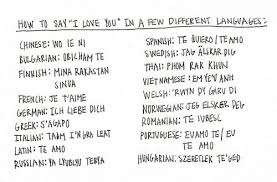 HOW TO SAY "I LOVE YOU" IN A FEW DIFFERENT LANGUAGES:
CHINESE: WO IE NI
BULGARIAN: OBICHAM TE
FINNISH: MINA RAKASTAN
SINVA
FRENCH: JE T'AIME
GERMAN: ICH LIEBE DICH
GREEK: S'AGAPO
ITALIAN: TAIM I'NGRA LEAT
LATIN: TE AMO
RUSSIAN: YA LYUBLYU TEBYA
SPANISH: TE QUIERO / TE AMO
SWEDISH: JAG ÄLSKAR DIG
THAI: PHOM RAK KHUN
VIETNAMESE: EM YE'U ANH
WELSH: 'RWTN DY GARU DI
NORWEGIAN: JEG ELSKER DEG
ROMANIAN: TE IUBESC
PORTUGUESE: EU AMO TE / EU
TE AMO
HUNGARIAN: SZERETLEK TE'GED